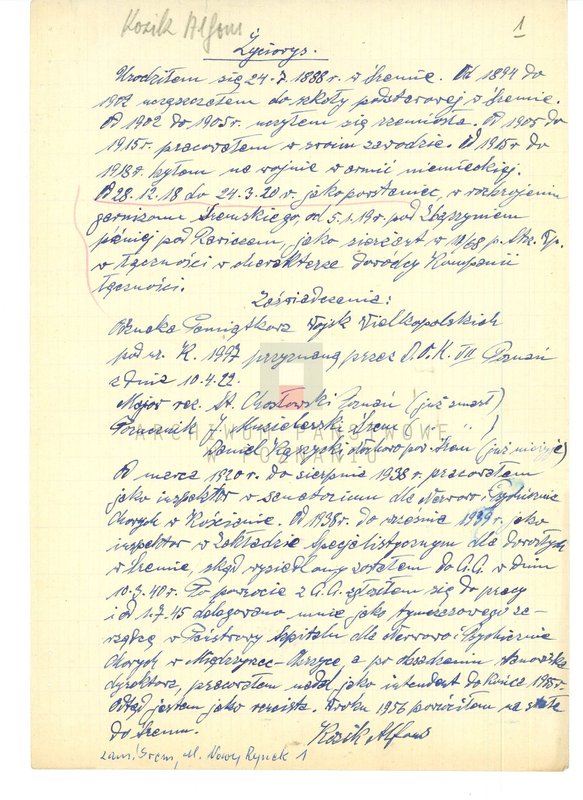 Kozik Alfons
1
Życiorys.
Urodziłem się 24.7.1888 r. w Śremie. Od 1894 do
1902 uczęszczałem do szkoły podstawowej w Śremie.
Od 1902 do 1905 r. uczyłem się rzemiosła. Od 1905 do
1915 r. pracowałem w swoim zawodzie. Od 1915 r do
1918 r. byłem na wojnie w armii niemieckiej.
Od 28.12.18 do 24.3.20 r. jako powstaniec, w rozbrojeniu
garnizonu Śremskiego, od 5.1.19 r. pod Zbąszyniem
później pod Rawiczem, jako sierżant w 10/68 p. Strz. Wp.
w łączności w charakterze dowódcy Kompanii
łączności.
Zaświadczenia:
Odznaka Pamiątkowa Wojsk Wielkopolskich
pod nr. K. 1997 przyznana przez D.O.K. VII Poznań
z dnia 10.4.22.
Major rez. St. Chosłowski Poznań (już zmarł)
Porucznik J. Musielerski Śrem ( " " )
Daniel Kęszycki Błociszewo pow. Śrem (już nie żyje)
Od marca 1920 r. do sierpnia 1938 r. pracowałem
jako inspektor w sanatorium dla Nerwow. i Psychicznie
Chorych w Kościanie. Od 1938 r. do września 1939 r. jako
inspektor w Zakładzie Specjalistycznym dla dorosłych
w Śremie skąd wysiedlony zostałem do G.G. w dniu
10.3.40 r. Po powrocie z G.G. zgłosiłem się do pracy
i od 1.7.45 delegowano mnie jako tymczasowego za-
rządcę w Państwowy Szpitalu dla Nerwowo i Psychicznie
Chorych w Międzyrzecz-Obrzyce, a po obsadzeniu stanowiska
dyrektora, pracowałem nadal jako intendent do końca 1955 r.
Odtąd jestem jako rencista. W roku 1956 powróciłem na stałe
do Śremu.
Kozik Alfons
zam. Śrem, ul. Nowy Rynek 1
ARCHIWUM PAŃSTWOWE
W POZNANIU